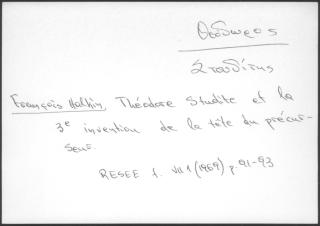 Θεόδωρος
Στουδίτης
François Halkin, Théodore Studite et la
3e invention de la tête du précur-
seur.
RESEE t. VII 1 (1969) p. 91-93